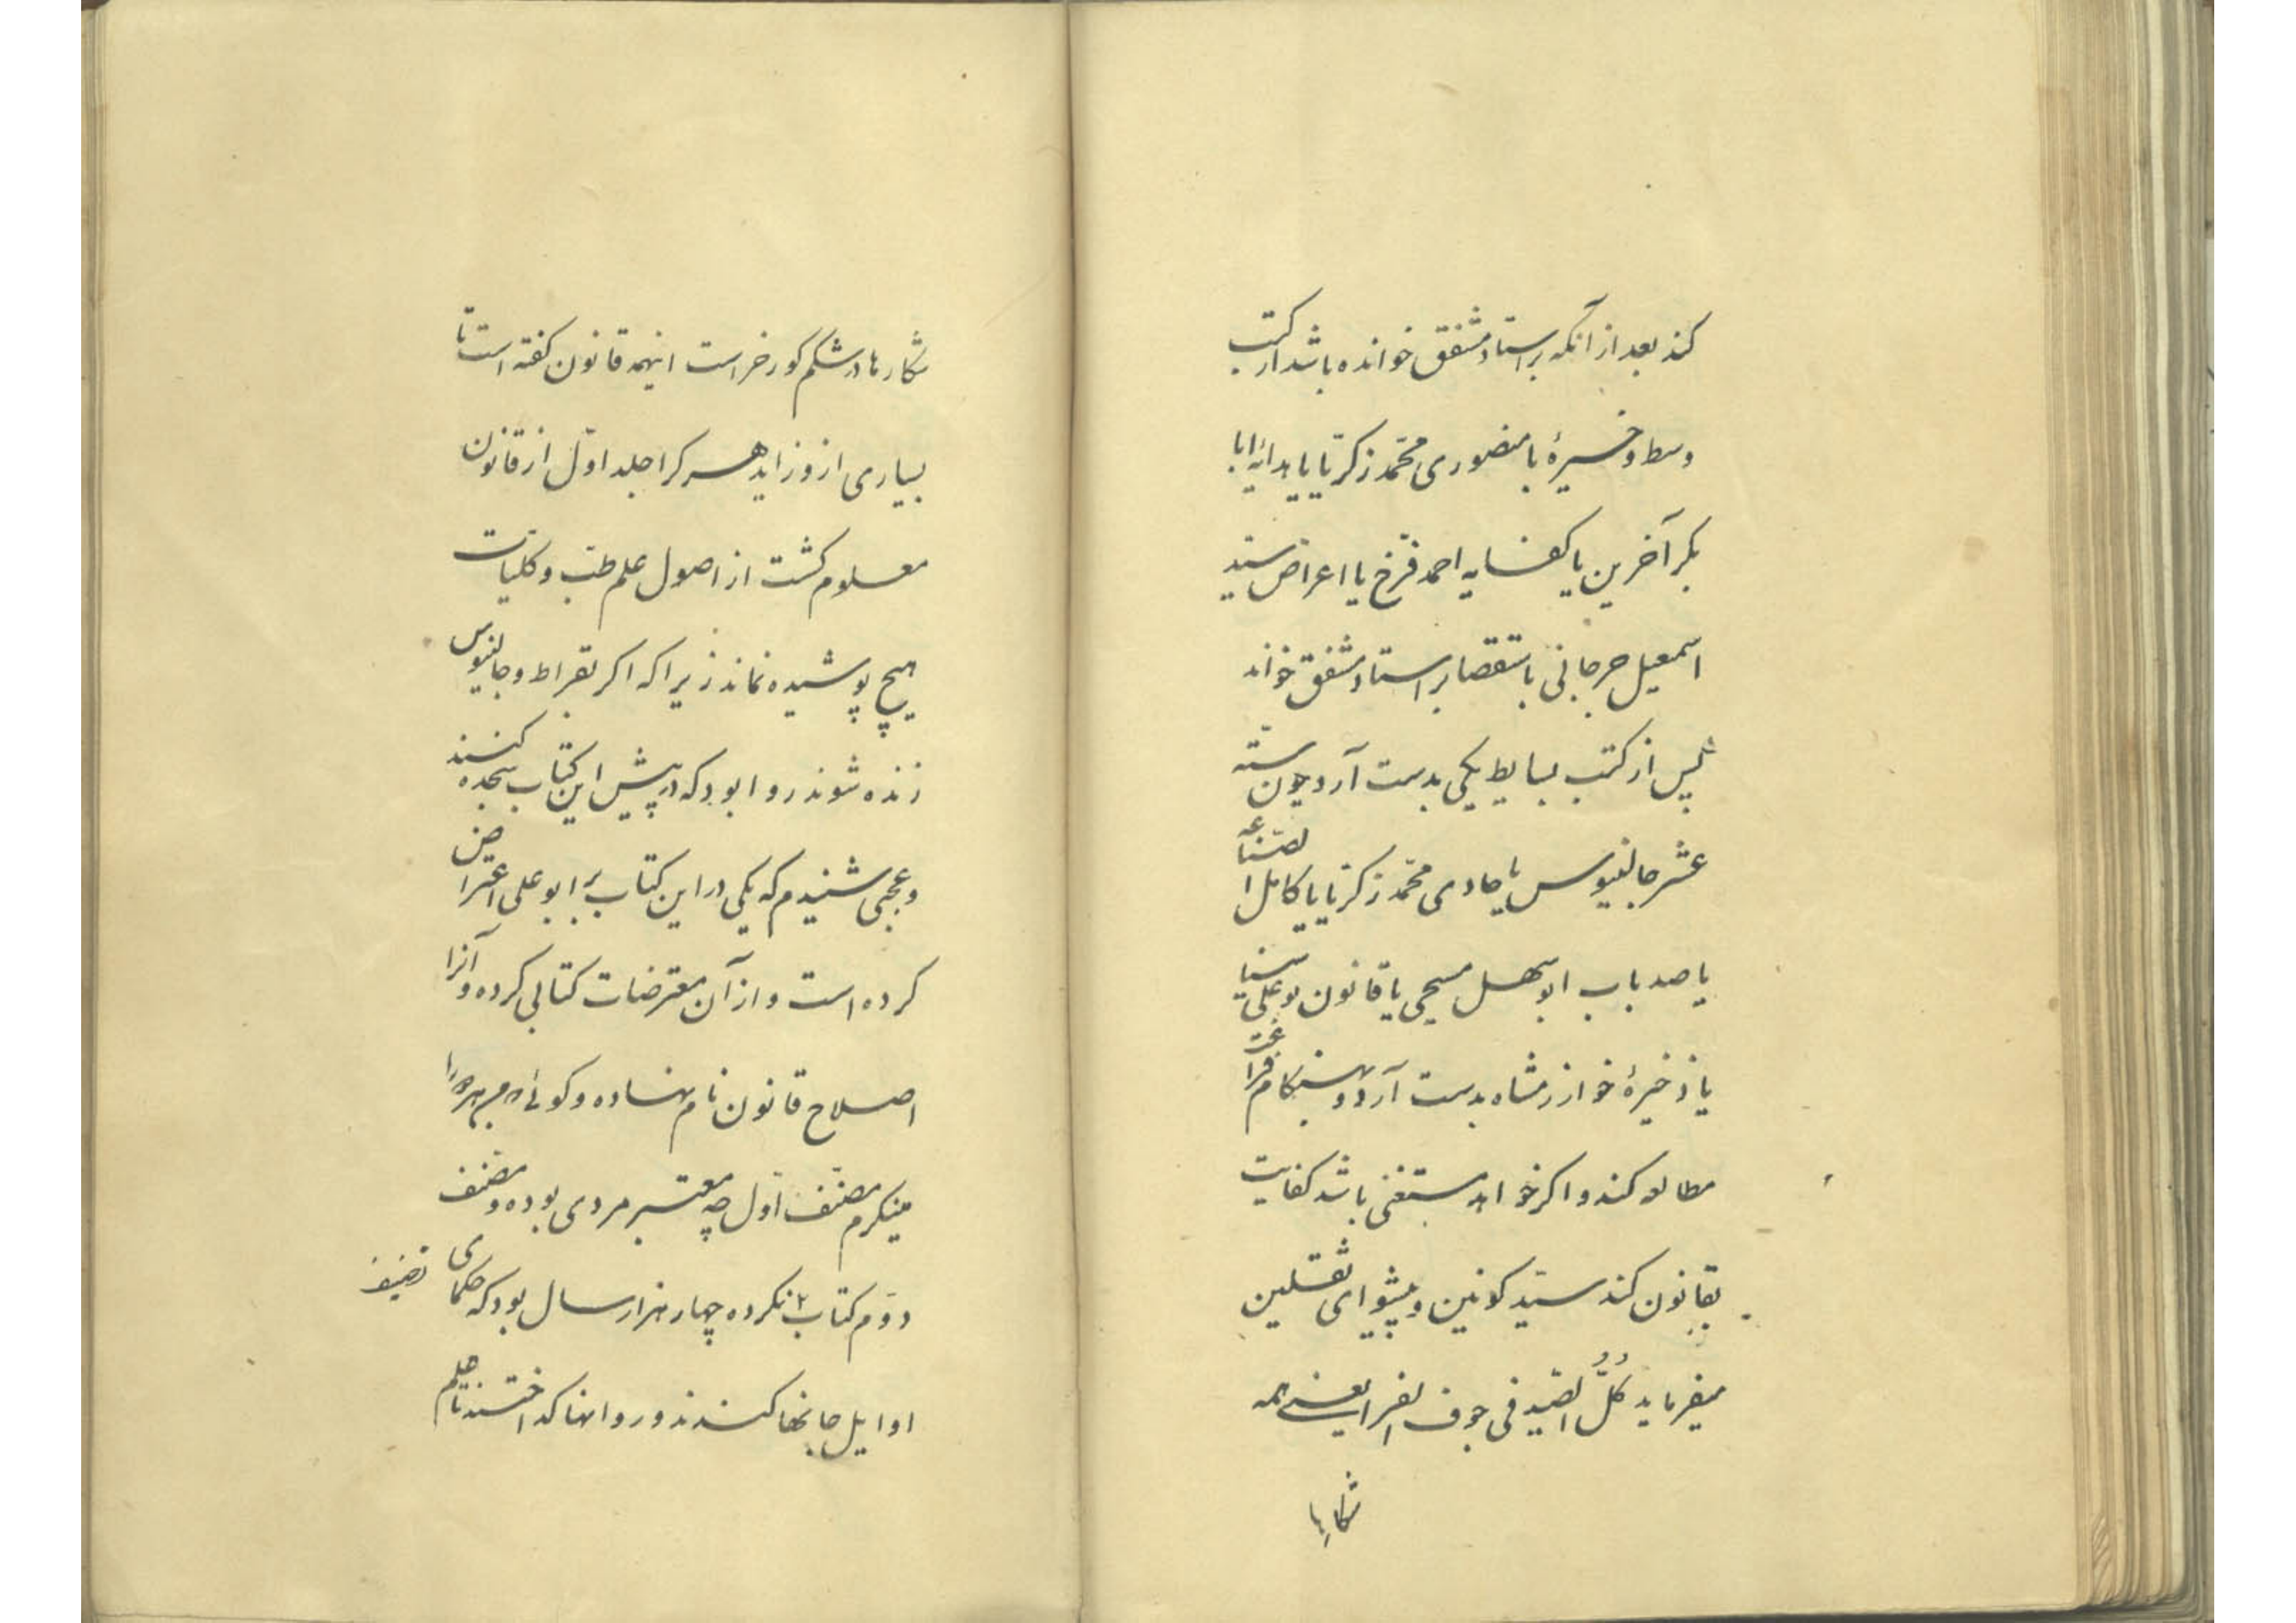 کند بعد از آنکه بر استاد مشفق خوانده باشد از کتب
وسط ذخیرهٔ یا منصوری محمّد زکریّا یا هدایهٔ ابا
بکر آخرین یا کفایه احمد فرّخ یا اعراض سیّد
اسمعیل جرجانی باستقصا بر استاد مشفق خواند
پس از کتب بسایط یکی بدست آرد چون ستّه
عشر جالنیوس یا حاوی محمّد زکریّا یا کامل الصّناعه
یا صد باب ابوسهل مسیحی یا قانون بو علی سینا
یا ذخیرهٔ خوارزمشاه بدست آرد و بهنکام فراغت
مطالعه کند و اکر خواهد مستغنی باشد کفایت
بقانون کند سیّد کونین و پیشوای ثقلین
میفرماید کُلُّ الصّید فی جوف الفرا یعنی همه
شکارها
شکارها در شکم کور خر است اینهمه قانون کفته است تا
بسیاری از و زاید هر کرا جلد اوّل از قانون
معلوم کشت از اصول علم طبّ و کلّیات
هیچ پوشیده نماند زیرا که اکر بقراط و جالنیوس
زنده شوند روا بود که در پیش این کتاب سجده کنند
و عجبی شنیدم که یکی در این کتاب بر ابو علی اعتراض
کرده است و از آن معترضات کتابی کرده و آنرا
اصلاح قانون نام نهاده و کوئی در هر دو
مینکرم مصنّف اوّل چه معتبر مردی بوده و مصنّف
دوّم کتاب نکرده چهار هزار سال بود که حکمای
تصنیف
اوایل جانها کندند و روانها کداختند تا علم